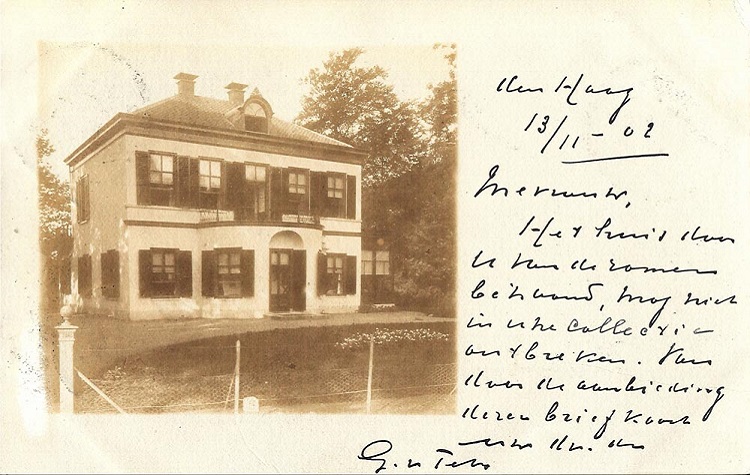 den Haag
13/11-02
Mevrouw,
Het huis door
U van de zomer
bewoond, mag niet
in uwe collectie
ontbreken. Van
daar de aanbieding
dezer briefkaart
uw dw. dn
G. v Tets